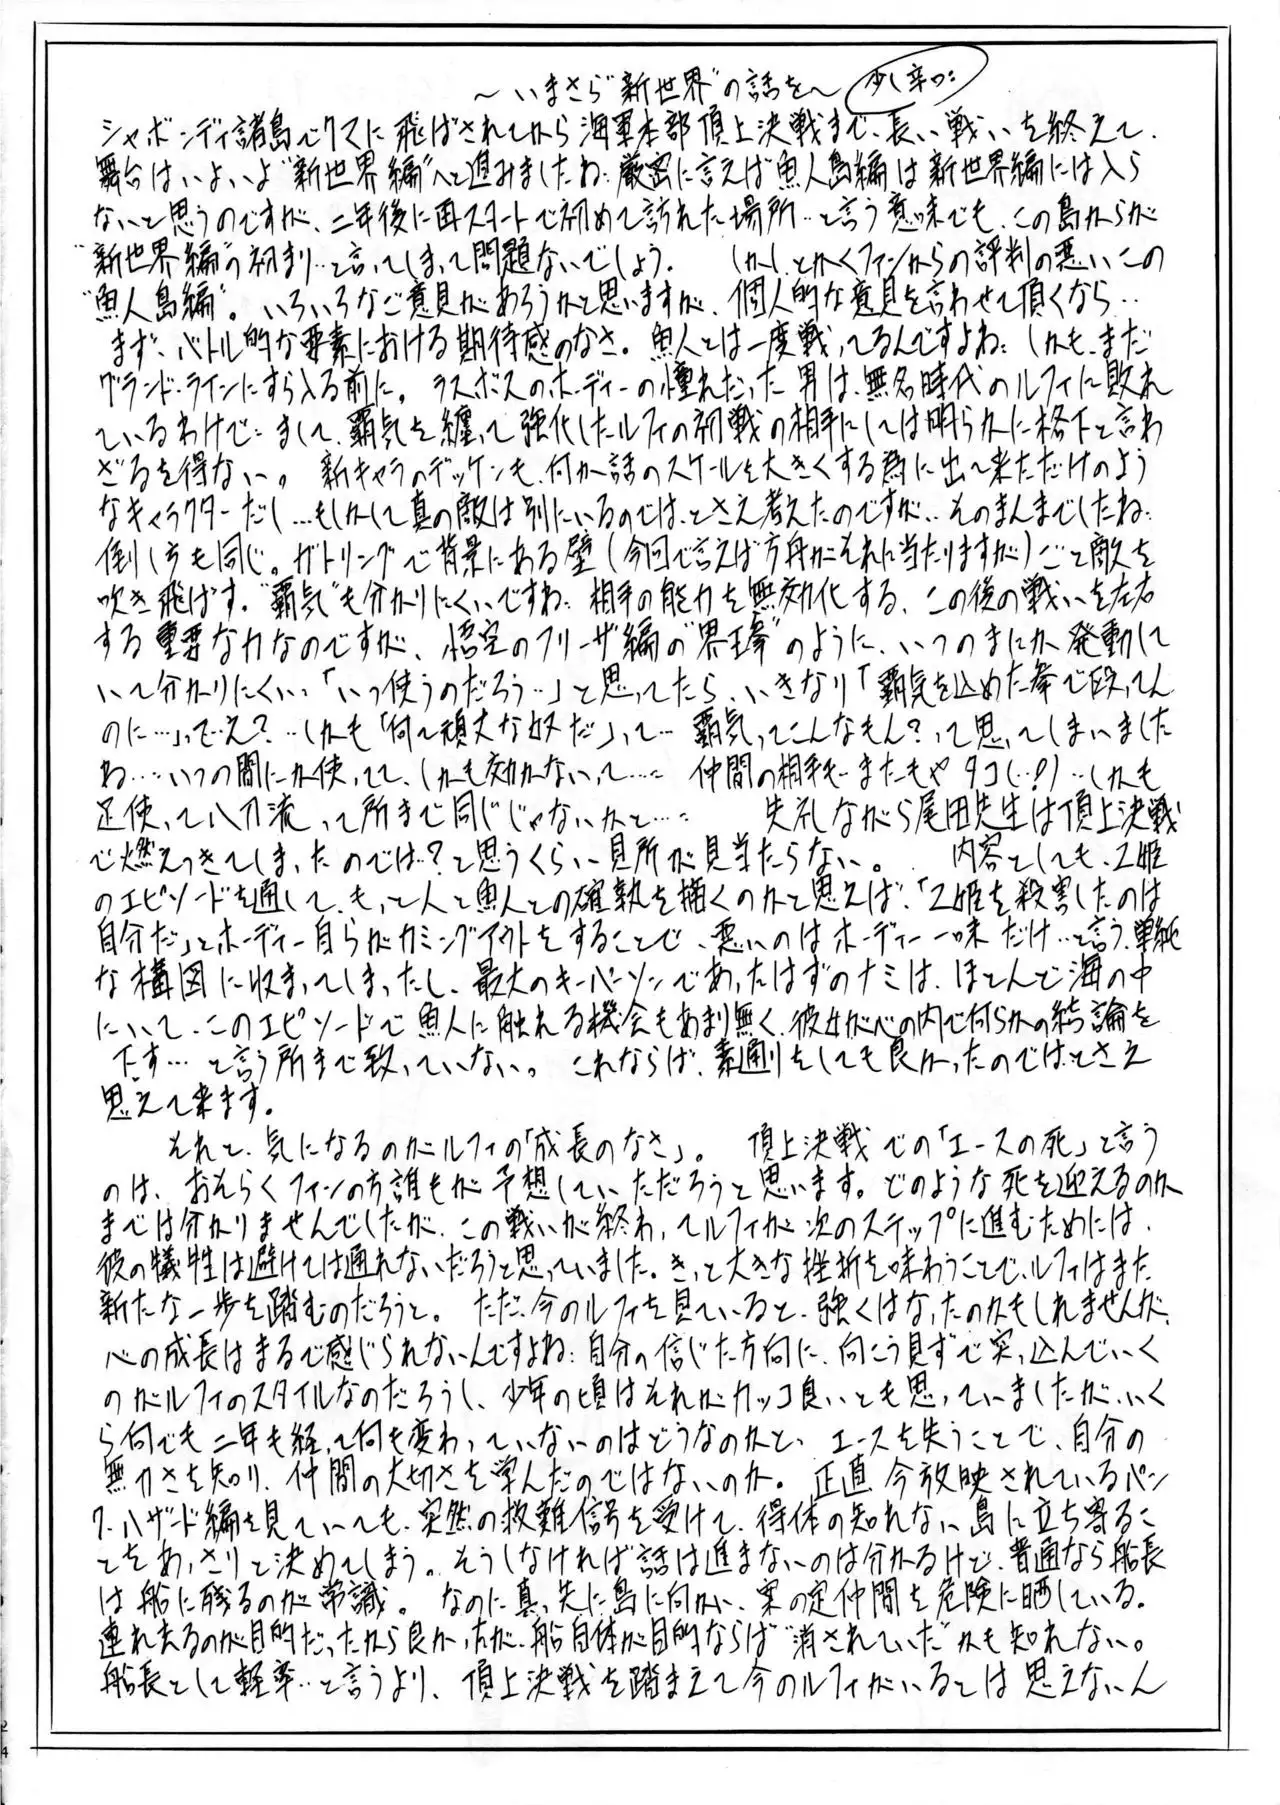 ～いまさら"新世界"の話を～ 少し辛口:
シャボンディ諸島でクマに飛ばされてから海軍本部頂上決戦まで、長い戦いを終えて、
舞台はいよいよ"新世界編"へと進みましたね: 厳密に言えば魚人島編は新世界編には入ら
ないと思うのですが、二年後に再スタートで初めて訪れた場所…と言う意味でも、この島からが
"新世界編"の初まり…と言ってしまって問題ないでしょう。 しかし、とかくファンからの評判の悪いこの
"魚人島編"。いろいろなご意見があろうかと思いますが、個人的な意見を言わせて頂くなら…
まず、バトル的な要素における期待感のなさ。魚人とは一度戦ってるんですよね: しかも、まだ
グランド・ラインにすら入る前に。ラスボスのホーディーの憧れだった男は、無名時代のルフィに敗れ
ているわけで: まして、覇気を纏って強化したルフィの初戦の相手にしては明らかに格下と言わ
ざるを得ない。 新キャラのデッケンも、何か話のスケールを大きくする為に出て来ただけのよう
なキャラクターだし…もしかして真の敵は別にいるのでは、とさえ考えたのですが、そのまんまでしたね:
倒し方も同じ。ガトリングで背景にある壁(今回で言えば方舟がそれに当たりますが)ごと敵を
吹き飛ばす。"覇気"も分かりにくいですね: 相手の能力を無効化する、この後の戦いを左右
する重要な力なのですが、悟空のフリーザ編の"界王拳"のように、いつのまにか発動して
いて分かりにくい、「いつ使うのだろう…」と思ってたら、いきなり「覇気を込めた拳で殴ってん
のに…」って…え?…しかも「何て頑丈な奴だ」って… 覇気ってこんなもん?って思ってしまいました
ね…いつの間にか使ってて、しかも効かないって…: 仲間の相手も…またもやタコ(…!)…しかも
足使って八刀流って所まで同じじゃないかと…: 失礼ながら尾田先生は頂上決戦
で燃えつきてしまったのでは?と思うくらい見所が見当たらない。 内容としても、乙姫
のエピソードを通して、もっと人と魚人との確執を描くのかと思えば、「乙姫を殺害したのは
自分だ」とホーディー自らがカミングアウトをすることで、悪いのはホーディー一味だけ…と言う、単純
な構図に収まってしまったし、最大のキーパーソンであったはずのナミは、ほとんど海の中
にいて、このエピソードで魚人に触れる機会もあまり無く、彼女が心の内で何らかの結論を
下す…と言う所まで致っていない。 これならば、素通りをしても良かったのでは、とさえ
思えて来ます。
それと、気になるのがルフィの「成長のなさ」。 頂上決戦での「エースの死」と言う
のは、おそらくファンの方誰もが予想していただろうと思います。どのような死を迎えるのか
までは分かりませんでしたが、この戦いが終わってルフィが次のステップに進むためには、
彼の犠牲は避けては通れないだろうと思っていました。きっと大きな挫折を味わうことで、ルフィはまた
新たな一歩を踏むのだろうと。 ただ、今のルフィを見ていると、強くはなったのかもしれませんが、
心の成長はまるで感じられないんですよね: 自分の信じた方向に、向こう見ずで突っ込んでいく
のがルフィのスタイルなのだろうし、少年の頃はそれがカッコ良いとも思っていましたが、いく
ら何でも二年も経って何も変わっていないのはどうなのかと、 エースを失うことで、自分の
無力さを知り、仲間の大切さを学んだのではないのか。 正直、今放映されているパン
ク・ハザード編を見ていても、突然の救難信号を受けて、得体の知れない島に立ち寄るこ
とをあっさりと決めてしまう。そうしなければ話は進まないのは分かるけど、普通なら船長
は船に残るのが常識。 なのに真っ先に島に向かい、案の定仲間を危険に晒している。
連れ去るのが目的だったから良かったが、船自体が目的ならば"消されていた"かも知れない。
船長として軽率…と言うより、頂上決戦を踏まえて今のルフィがいるとは思えないん
24